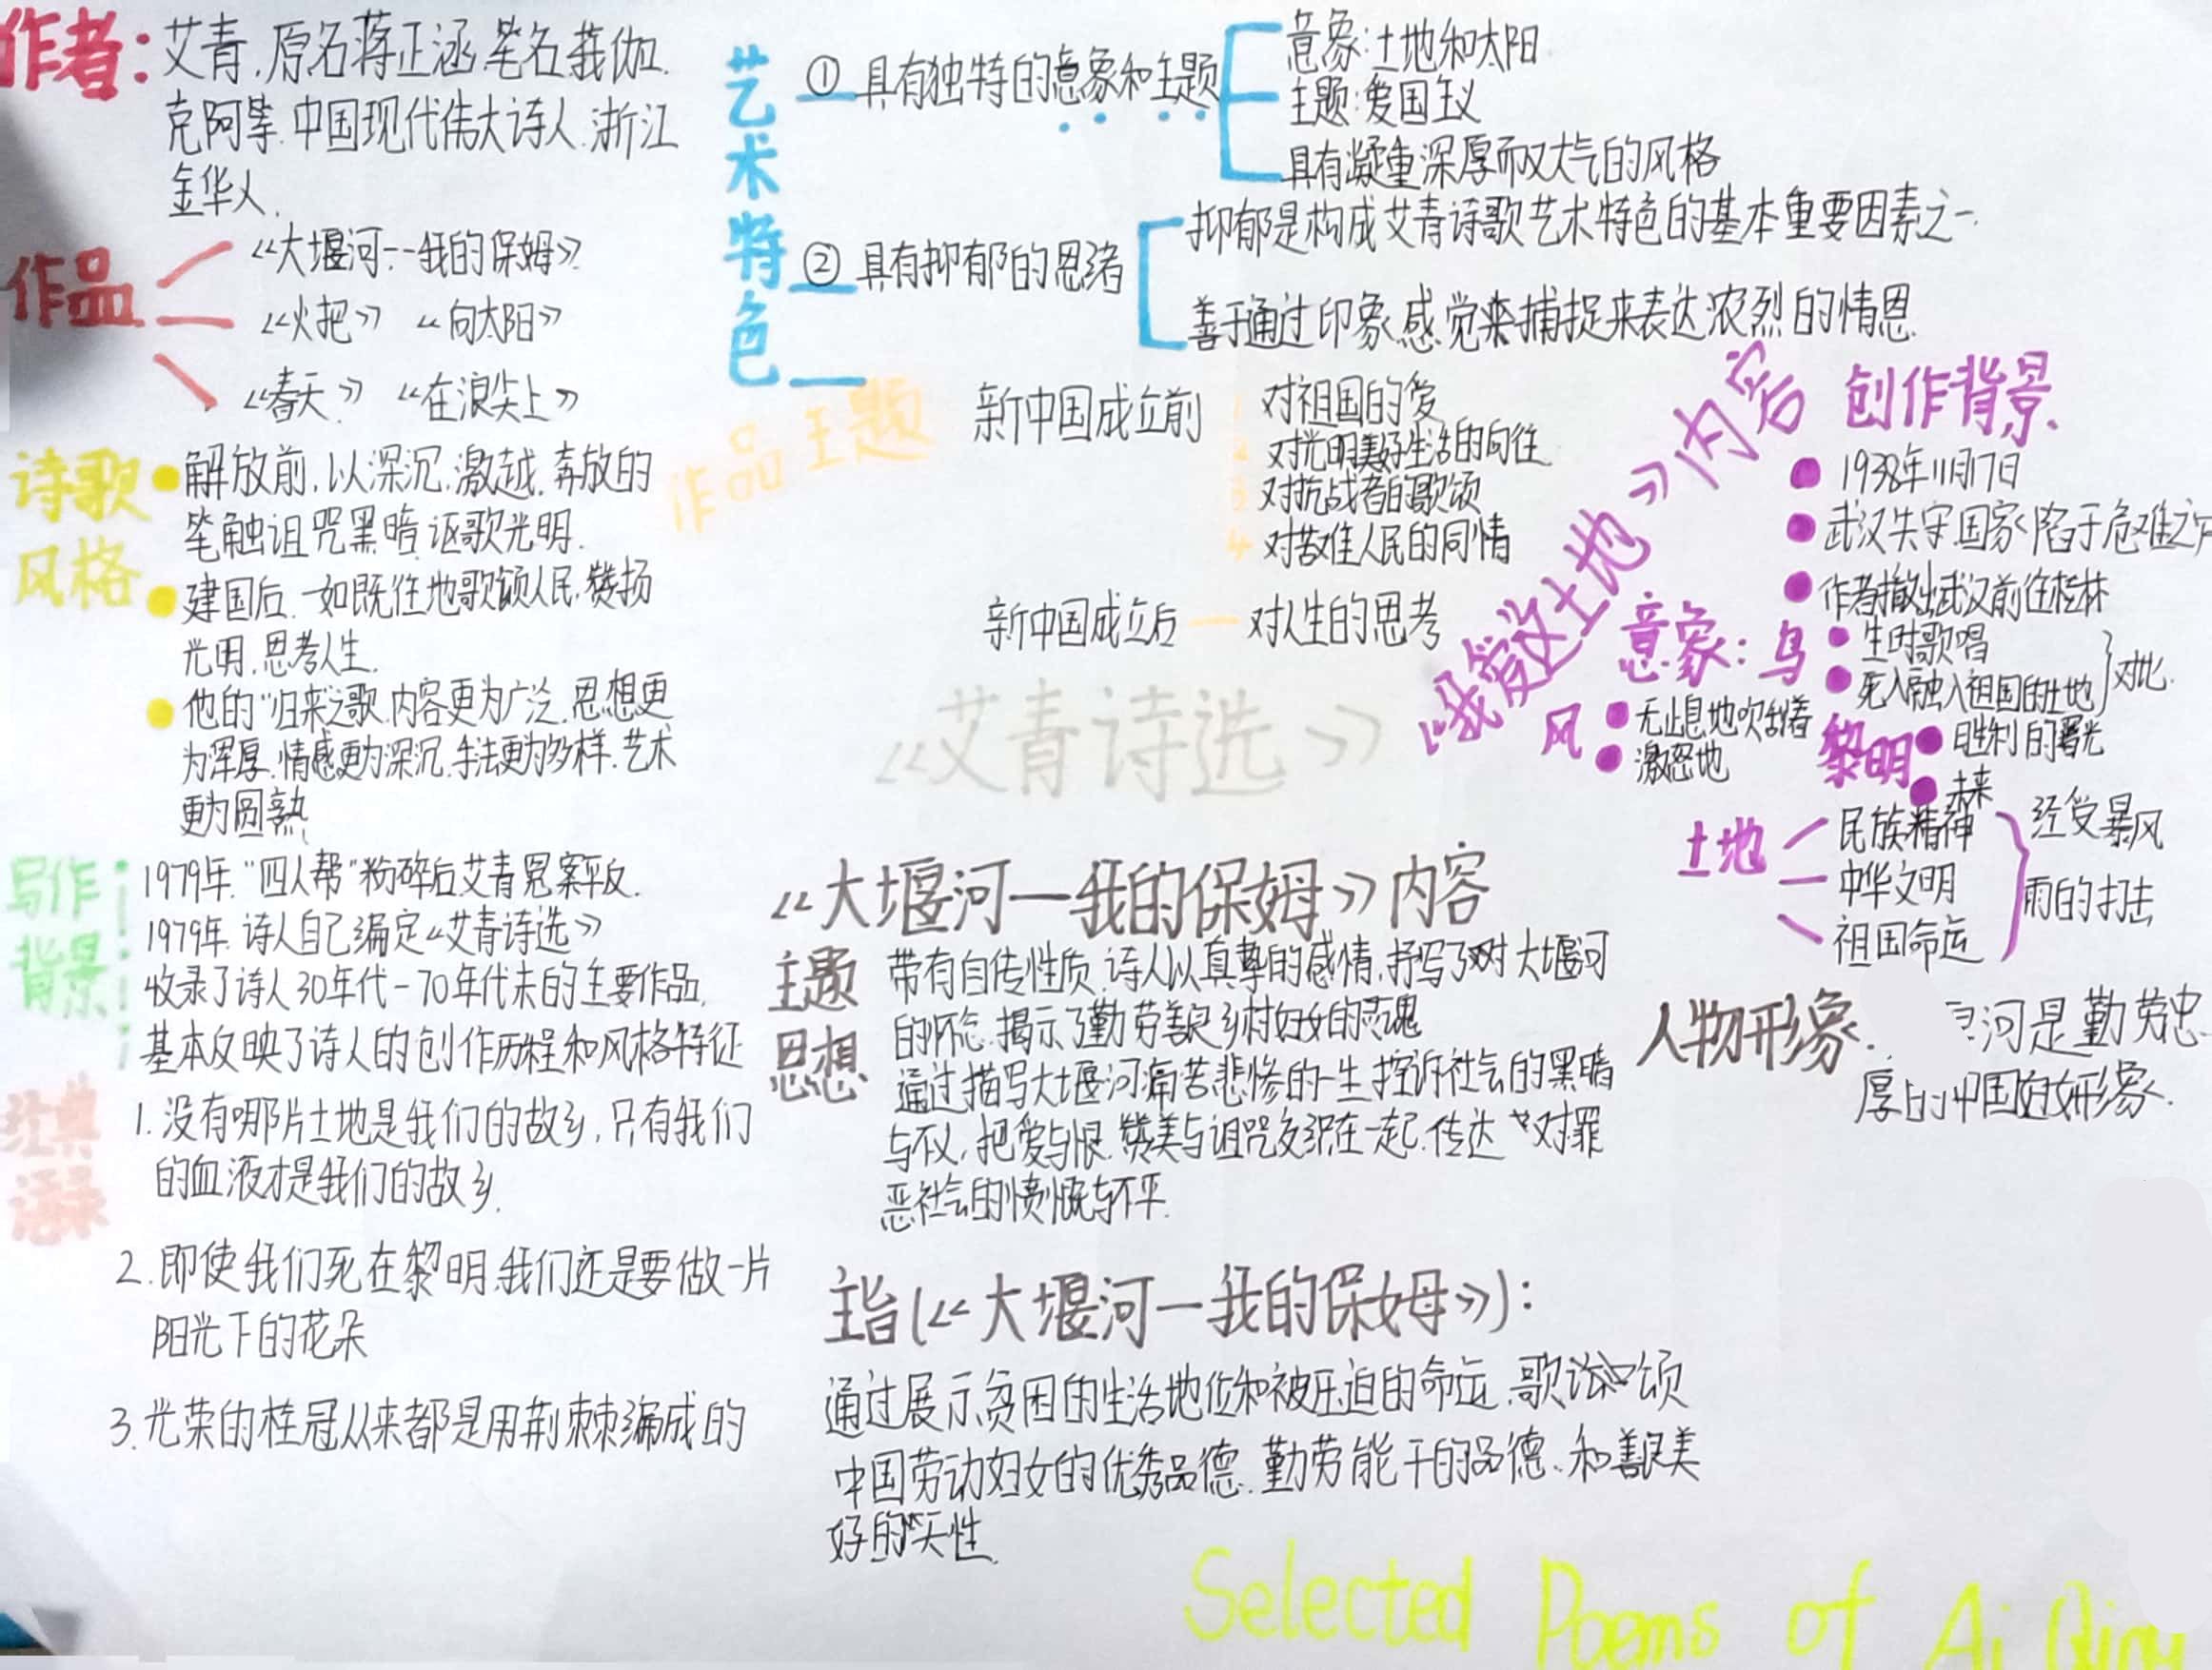 作者：艾青，原名蒋正涵，笔名莪伽、
克阿等.中国现代伟大诗人.浙江
金华人.
作品
《大堰河--我的保姆》
《火把》 《向太阳》
《春天》 《在浪尖上》
诗歌
风格
解放前，以深沉.激越.奔放的
笔触诅咒黑暗.讴歌光明.
建国后.一如既往地歌颂人民，赞扬
光明.思考人生.
他的"归来之歌.内容更为广泛.思想更
为浑厚.情感更为深沉.手法更为多样.艺术
更为圆熟.
写作
背景
1979年."四人帮"粉碎后.艾青冤案平反.
1979年.诗人自己编定《艾青诗选》
收录了诗人30年代-70年代末的主要作品.
基本反映了诗人的创作历程和风格特征
经典
语录
1.没有哪片土地是我们的故乡，只有我们
的血液才是我们的故乡.
2.即使我们死在黎明.我们还是要做一片
阳光下的花朵
3.光荣的桂冠从来都是用荆棘编成的
艺术特色
① 具有独特的意象和主题
意象：土地和太阳
主题：爱国主义
具有凝重深厚而又大气的风格
② 具有抑郁的思绪
抑郁是构成艾青诗歌艺术特色的基本重要因素之一.
善于通过印象.感觉来捕捉来表达浓烈的情思.
作品主题
新中国成立前
1 对祖国的爱
2 对光明美好生活的向往
3 对抗战者的歌颂
4 对苦难人民的同情
新中国成立后 — 对人生的思考
《艾青诗选》
《我爱这土地》内容
创作背景
1938年11月17日
武汉失守.国家陷于危难之
作者撤出武汉前往桂林
意象：鸟
生时歌唱
死入融入祖国的土地
对比
风
无止息地吹刮着
激怒地
黎明
胜利的曙光
未来
土地
民族精神
中华文明
祖国命运
经受暴风
雨的打击
《大堰河—我的保姆》内容
主题
思想
带有自传性质.诗人以真挚的感情.抒写了对大堰河
的怀念.揭示了勤劳善良乡村妇女的灵魂
通过描写大堰河痛苦悲惨的一生控诉社会的黑暗
与不义，把爱与恨.赞美与诅咒交织在一起.传达对罪
恶社会的愤慨与不平.
人物形象.
河是勤劳忠
厚的中国妇女形象.
主旨(《大堰河—我的保姆》)：
通过展示贫困的生活地位和被压迫的命运.歌颂
中国劳动妇女的优秀品德.勤劳能干的品德.和善良美
好的天性.
Selected Poems of Ai Qing